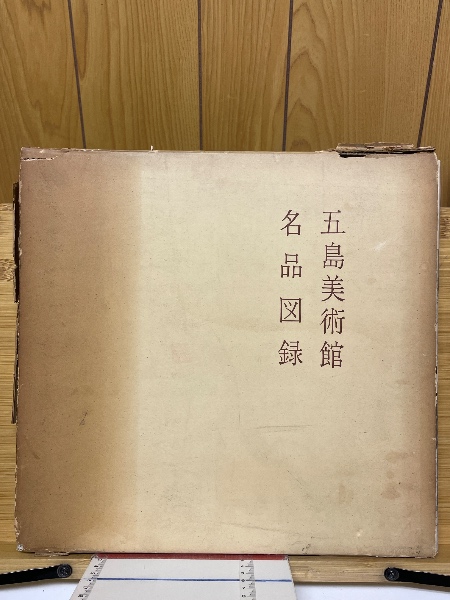 五島美術館
名品図録